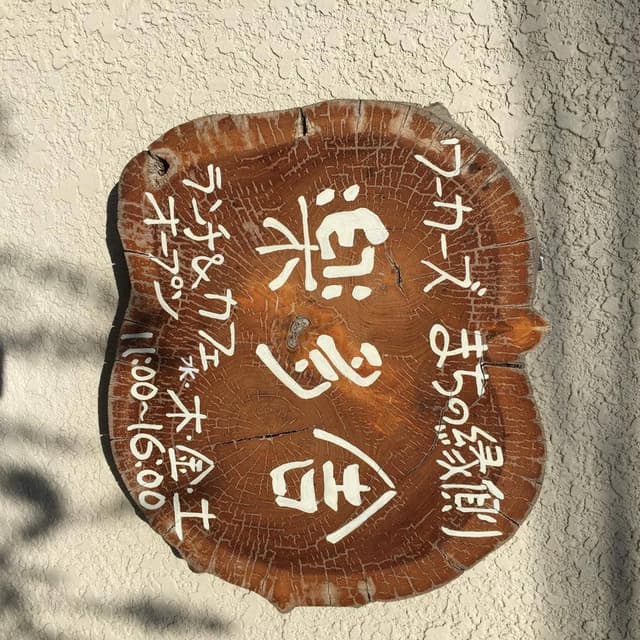 ワーカーズ まちの縁側
楽多舎
ランチ&カフェ 水・木・金・土
オープン 11:00~16:00